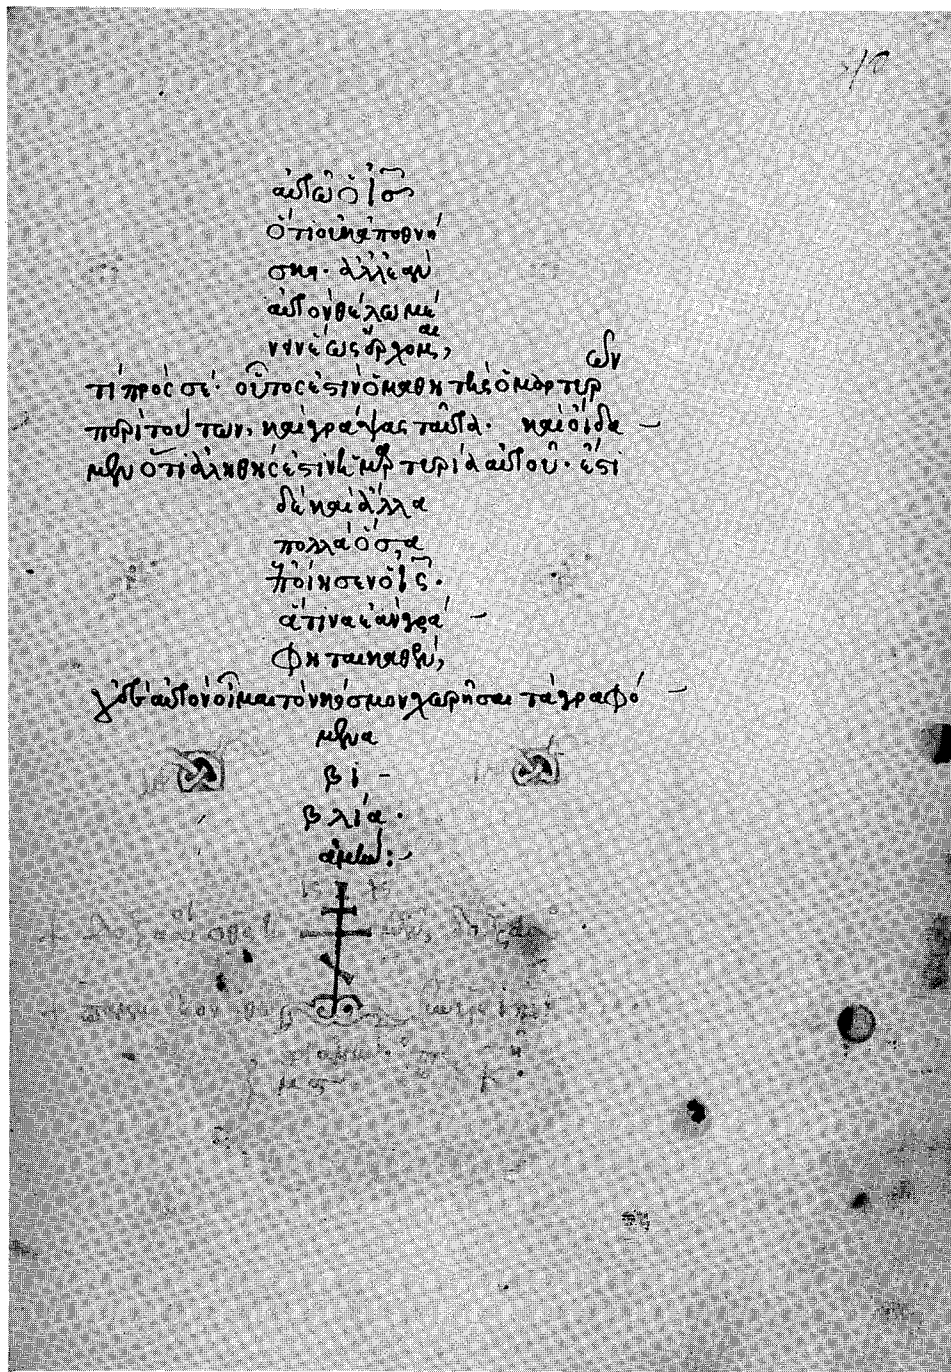 αὐτῶ ὁ ἰ̅σ̅
ὅτι οὐκ ἀποθνή
σκει· ἀλλ' ἐὰν
αὐτὸν θέλω μέ
νειν ἕως ἔρχομαι,
τί πρὸς σέ· οὗτός ἐστιν ὁ μαθητὴς ὁ μαρτυρῶν
περὶ τούτων, καὶ γράψας ταῦτα· καὶ οἴδα
μεν ὅτι ἀληθής ἐστιν ἡ μαρτυρία αὐτοῦ· ἔστι
δὲ καὶ ἄλλα
πολλὰ ὅσα
ἐποίησεν ὁ ἰ̅ς̅·
ἅτινα ἐὰν γρά
φηται καθ' ἕν,
οὐδὲ αὐτὸν οἶμαι τὸν κόσμον χωρῆσαι τὰ γραφό
μενα
βι
βλία·
ἀμήν: